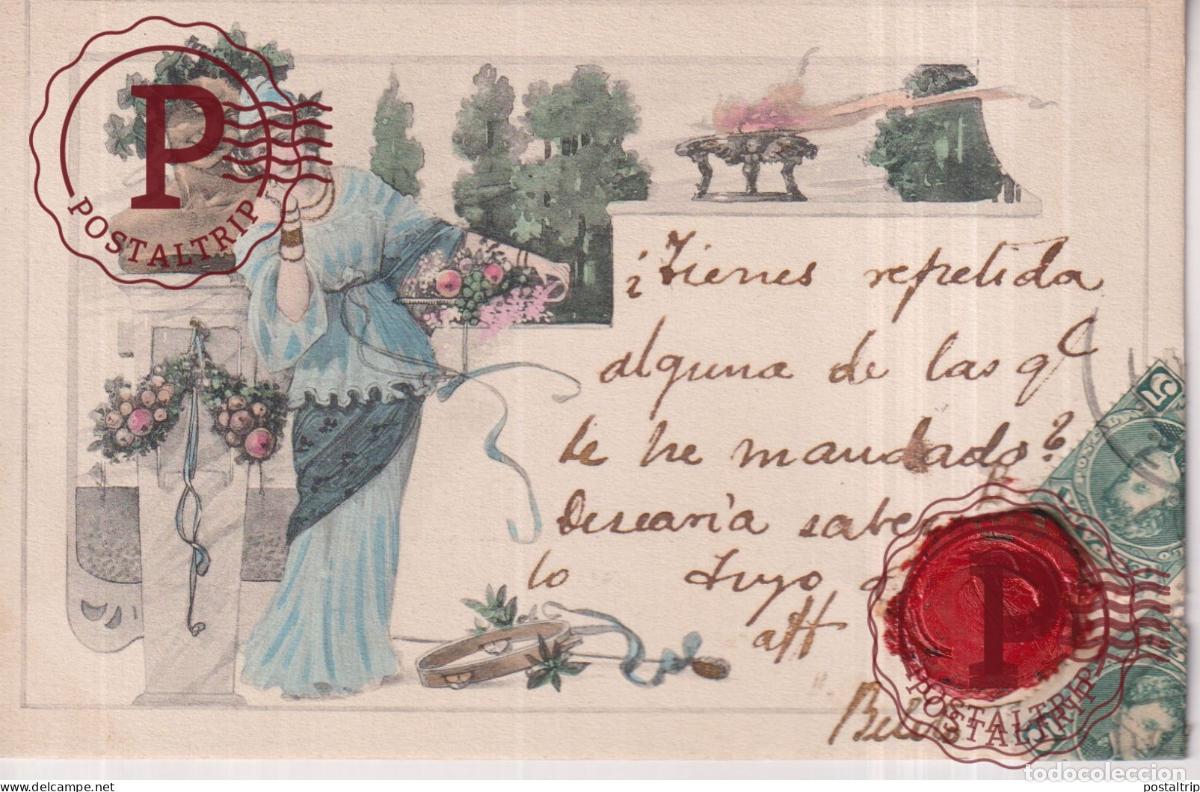 P
POSTALTRIP
¿Tienes repetida
alguna de las qe
te he mandado?
Desearía saber
lo tuyo
att
5
P
POSTALTRIP
POSTALTRIP
todocoleccion
www.delcampe.net
postaltrip